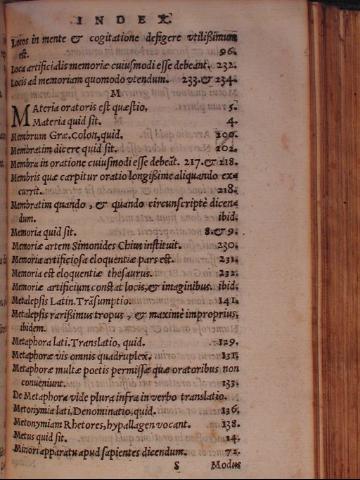 INDEX.
Locos in mente & cogitatione defigere vtilißimum
est. 96.
Loca artificialis memoriæ cuiusmodi esse debeant. 232.
Locis ad memoriam quomodo vtendum. 233. & 234.
M
Materia oratoris est quæstio. 5.
Materia quid sit. 4.
Membrum Græ. Colon, quid. 200.
Membratim dicere quid sit. 202.
Membra in oratione cuiusmodi esse debeãt. 217. & 218.
Membris quæ carpitur oratio longißime aliquando ex=
currit. 218.
Membratim quando, & quando circunscriptè dicen=
dum. ibid.
Memoria quid sit. 8. & 9.
Memoriæ artem Simonides Chius instituit. 230.
Memoria artificiosa eloquentiæ pars est. 231.
Memoria est eloquentiæ thesaurus. 232.
Memoriæ artificium constat locis, & imaginibus. ibid.
Metalepsis Latin. Trãsumptio. 141.
Metalepsis rarißimus tropus, & maximè improprius,
ibidem.
Metaphora lati. Translatio, quid. 129.
Metaphoræ vis omnis quadruplex. 131.
Metaphoræ multæ poetis permissæ quæ oratoribus non
conueniunt. 135.
De Metaphora vide plura infra in verbo translatio.
Metonymia lati, Denominatio, quid. 136.
Metonymiam Rhetores, hypallagen vocant. 138.
Metus quid sit. 14.
Minori apparatu apud sapientes dicendum. 72.
S Modus